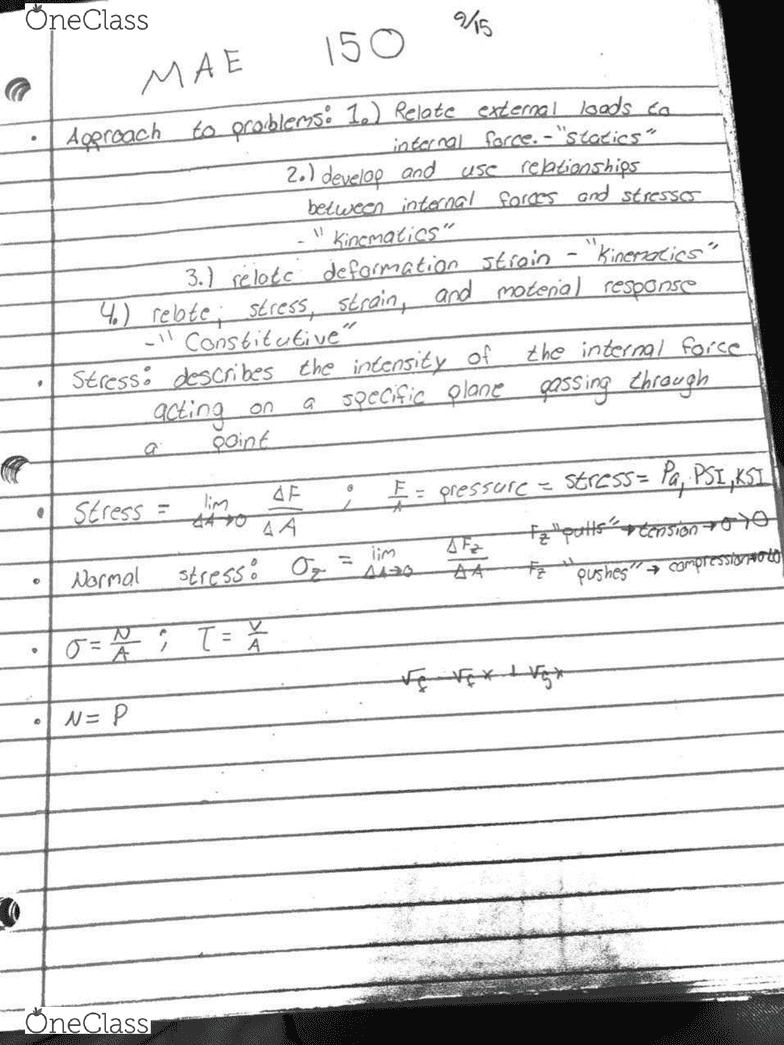 OneClass
MAE 150 9/15
• Approach to problems: 1.) Relate external loads to
internal force. - "statics"
2.) develop and use relationships
between internal forces and stresses
- "Kinematics"
3.) relate deformation strain - "Kinematics"
4.) relate; stress, strain, and material response
- "Constitutive"
• Stress: describes the intensity of the internal force
acting on a specific plane passing through
a point
• Stress = lim ΔA→0 ΔF/ΔA ; F/A = pressure = stress = Pa, PSI, KSI
Fz "pulls" → tension → σ>0
• Normal stress: σz = lim ΔA→0 ΔFz/ΔA Fz "pushes" → compression→
• σ = N/A ; τ = V/A
• N = P
OneClass